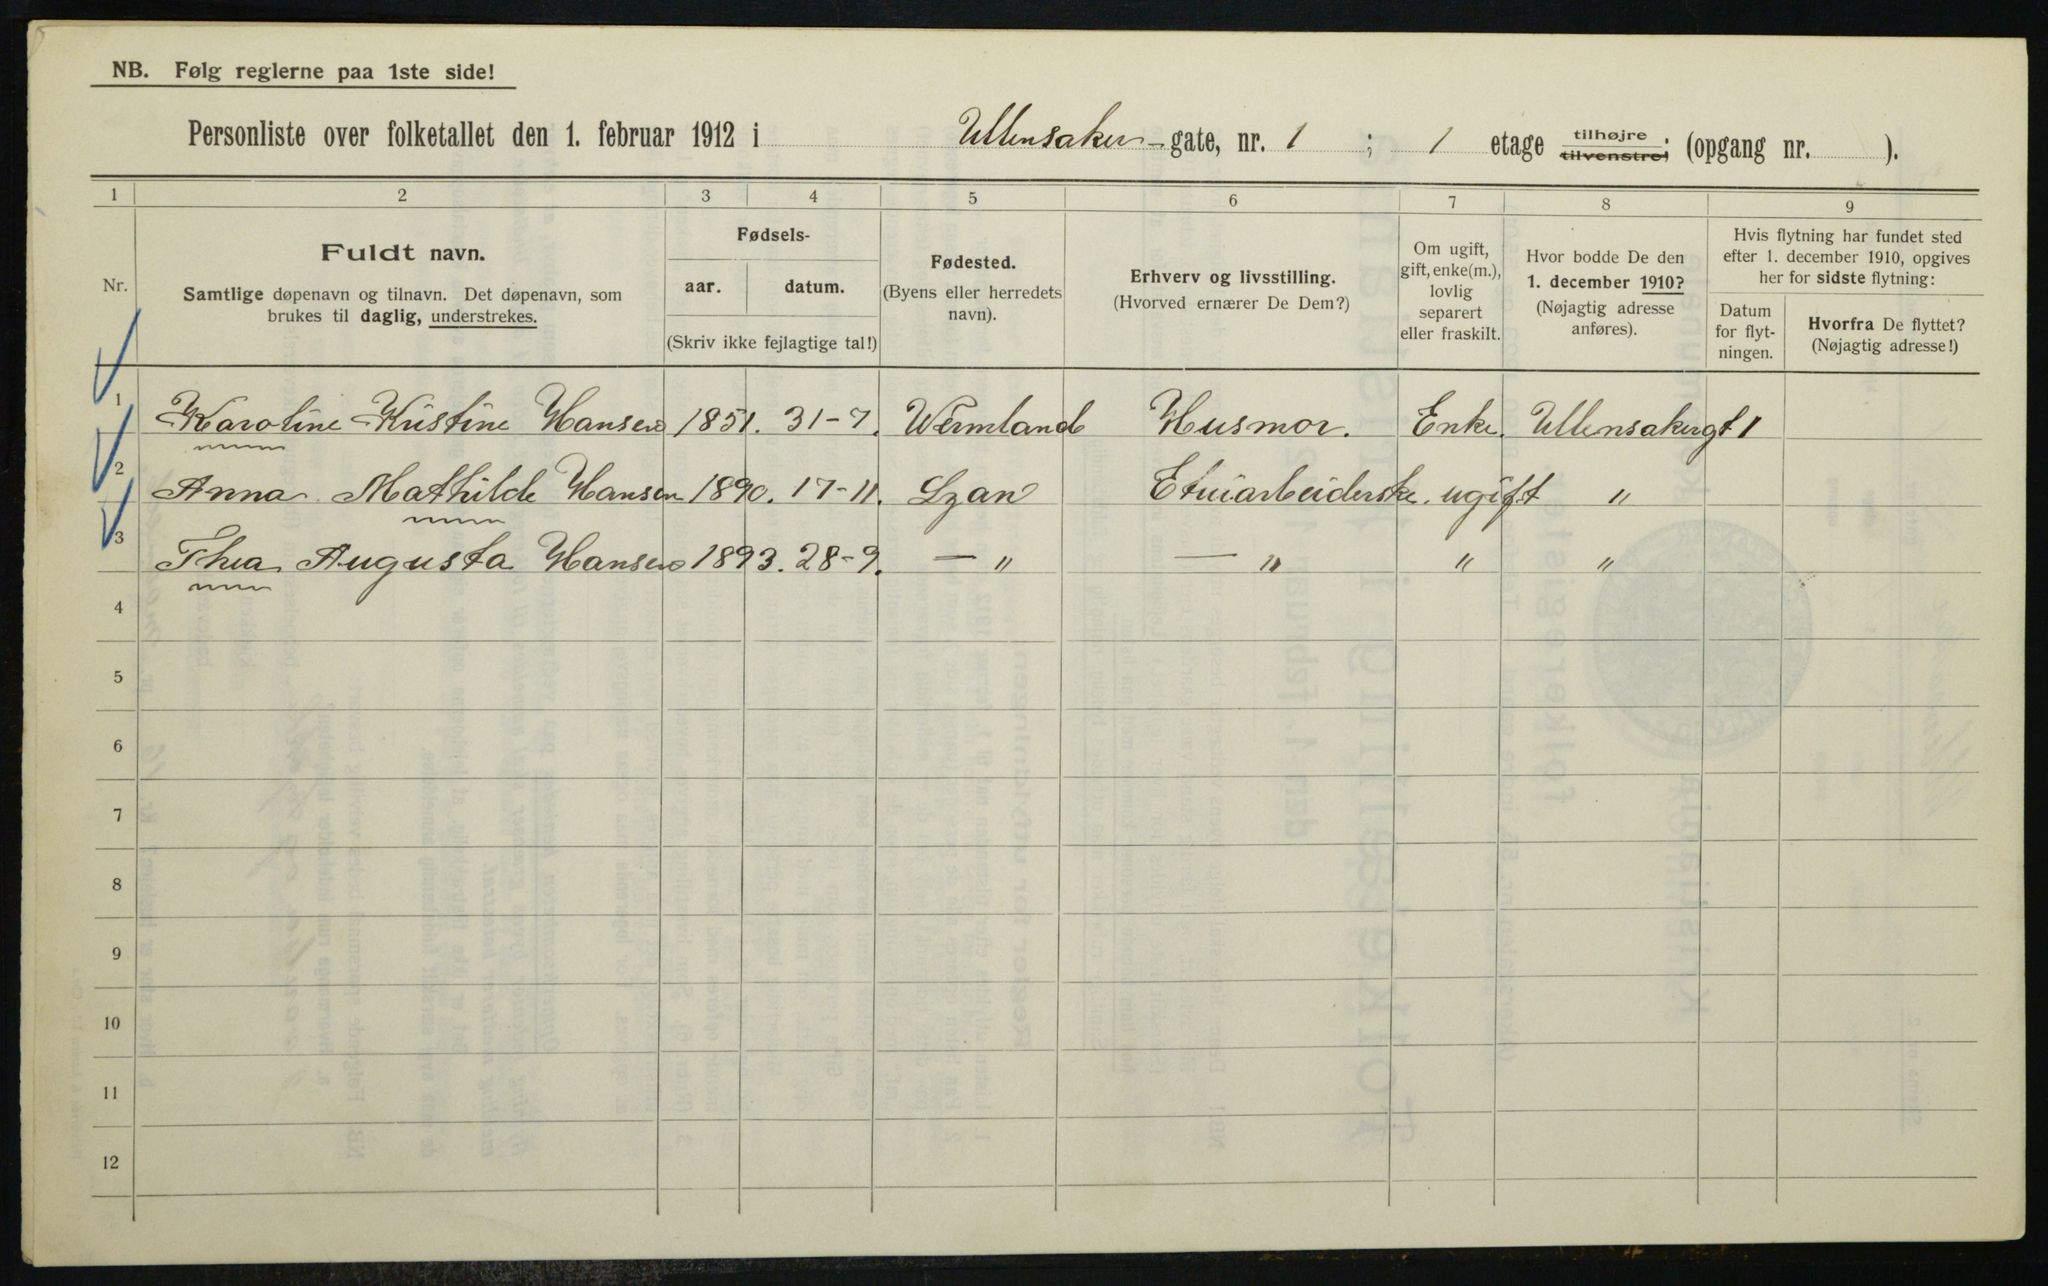 NB. Følg reglerne paa 1ste side!
Personliste over folketallet den 1. februar 1912 i Ullensaker-gate, nr. 1 ; 1 etage tilhøjre tilvenstre; (opgang nr. ).
1 2 3 4 5 6 7 8 9
Nr.
Fuldt navn.
Samtlige døpenavn og tilnavn. Det døpenavn, som
brukes til daglig, understrekes.
Fødsels-
aar. datum.
(Skriv ikke fejlagtige tal!)
Fødested.
(Byens eller herredets
navn).
Erhverv og livsstilling.
(Hvorved ernærer De Dem?)
Om ugift,
gift, enke(m.),
lovlig
separert
eller fraskilt.
Hvor bodde De den
1. december 1910?
(Nøjagtig adresse
anføres).
Hvis flytning har fundet sted
efter 1. december 1910, opgives
her for sidste flytning:
Datum
for flyt-
ningen.
Hvorfra De flyttet?
(Nøjagtig adresse!)
1 Karoline Kristine Hansen 1851. 31-7. Wermland Husmor. Enke. Ullensakergt 1
2 Anna Mathilde Hansen 1890. 17-11. Lyan Etuiarbeiderske. ugift "
3 Thea Augusta Hansen 1893. 28-9. — " — " " "
4
5
6
7
8
9
10
11
12